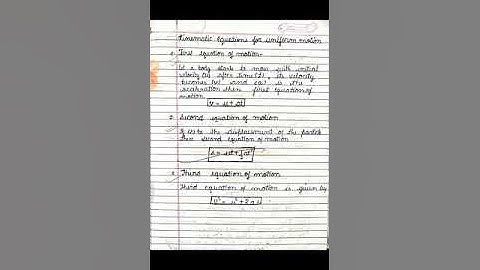 Kinematic Equations for uniform motion
First equation of motion-
If a body starts to move with initial
velocity (u) after time (t), its velocity
becomes (v) and (a) is the
acceleration then first equation of
motion
V = u + at
Second equation of motion
If (s) be the displacement of the particle
then second equation of motion
s = ut + 1/2 at²
Third equation of motion
Third equation of motion is given by
V² = u² + 2as